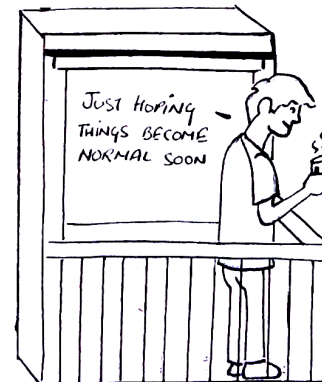 JUST HOPING
THINGS BECOME
NORMAL SOON